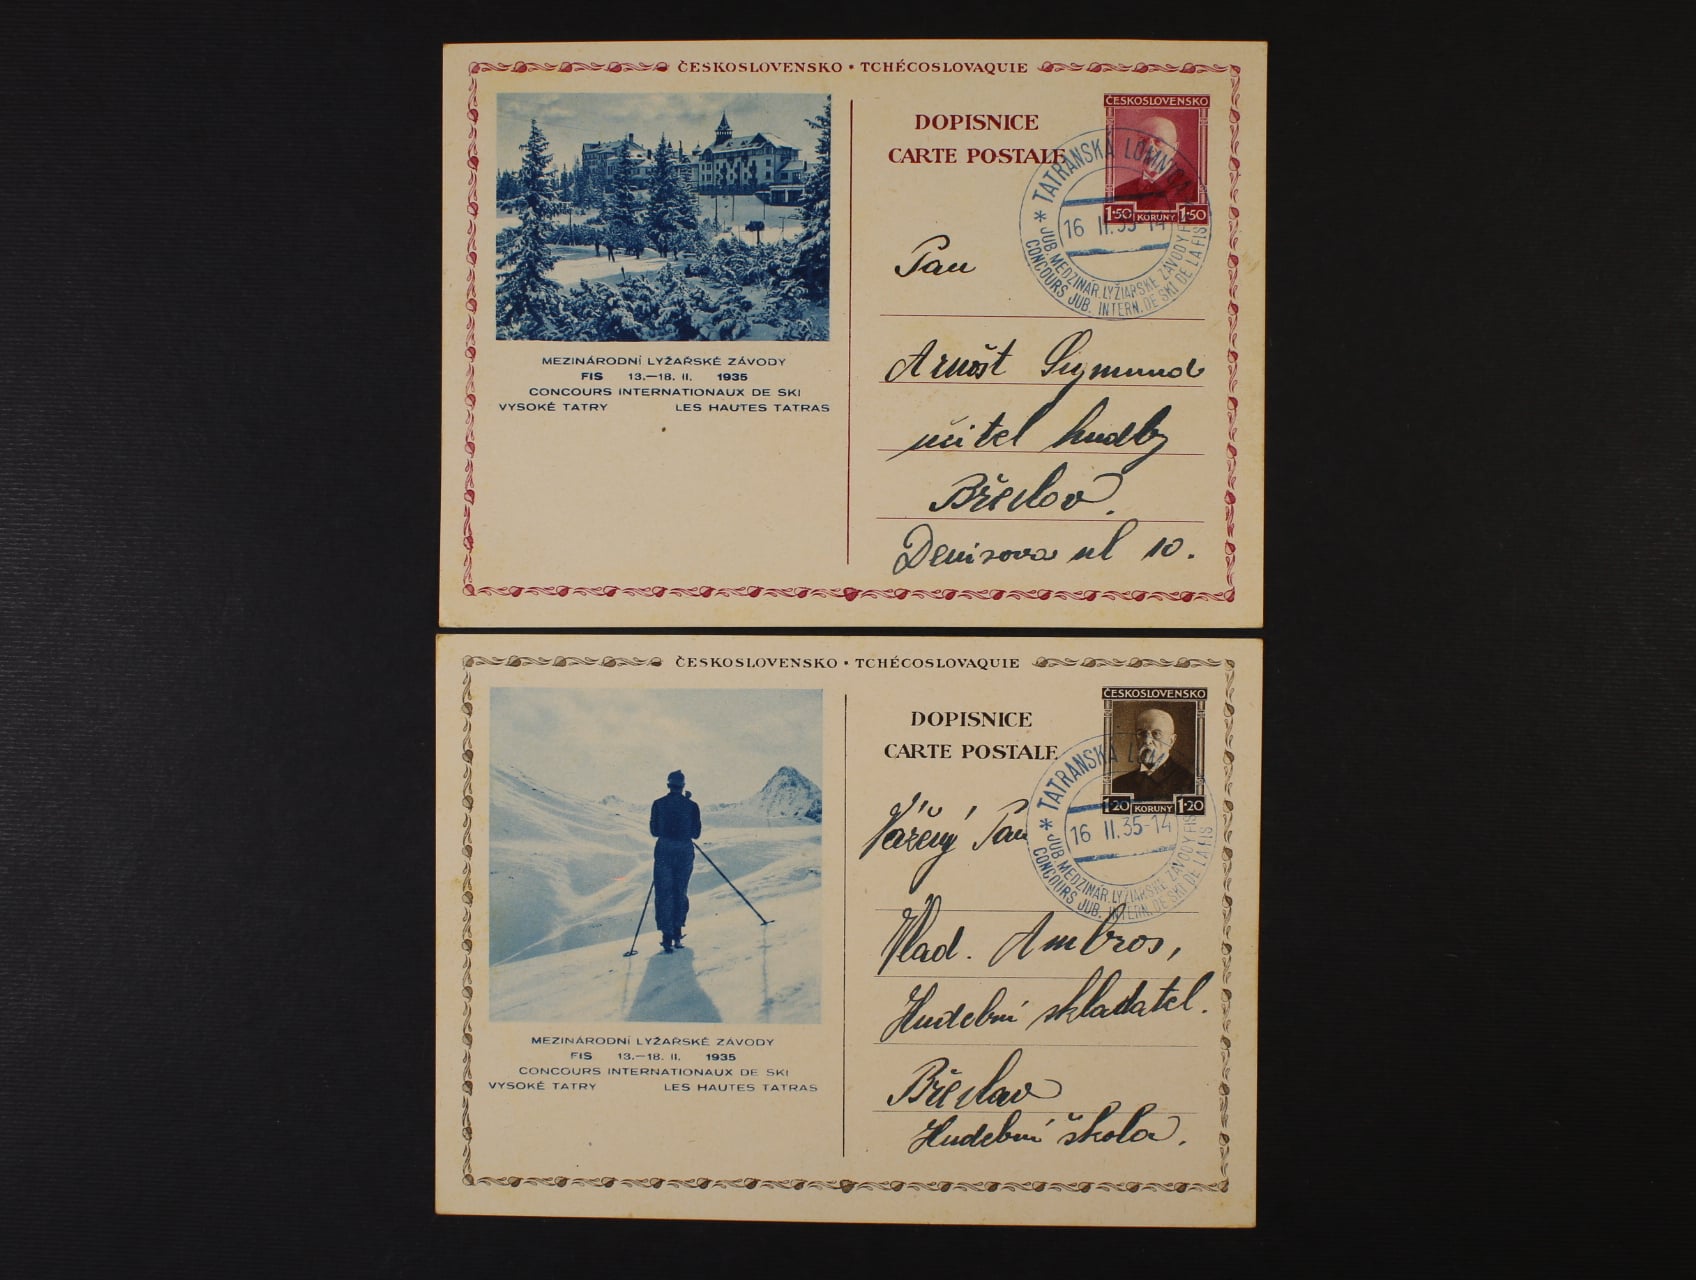 ČESKOSLOVENSKO • TCHÉCOSLOVAQUIE
DOPISNICE
CARTE POSTALE
ČESKOSLOVENSKO
1·50 KORUNY 1·50
* TATRANSKÁ LOMNICA
16 II. 35-14
JUB. MEDZINÁR. LYŽIARSKE ZÁVODY FIS
CONCOURS JUB. INTERN. DE SKI DE LA FIS
MEZINÁRODNÍ LYŽAŘSKÉ ZÁVODY
FIS 13.—18. II. 1935
CONCOURS INTERNATIONAUX DE SKI
VYSOKÉ TATRY LES HAUTES TATRAS
Pan
Arnošt Sigmund
učitel hudby
Břeclav.
Denisova ul 10.
ČESKOSLOVENSKO • TCHÉCOSLOVAQUIE
DOPISNICE
CARTE POSTALE
ČESKOSLOVENSKO
1·20 KORUNY 1·20
* TATRANSKÁ LOM
16 II. 35-14
JUB. MEDZINÁR. LYŽIARSKE ZÁVODY FIS
CONCOURS JUB. INTERN. DE SKI DE LA FIS
MEZINÁRODNÍ LYŽAŘSKÉ ZÁVODY
FIS 13.—18. II. 1935
CONCOURS INTERNATIONAUX DE SKI
VYSOKÉ TATRY LES HAUTES TATRAS
Vážený Pan
Vlad. Ambros,
Hudební skladatel.
Břeclav
Hudební škola.